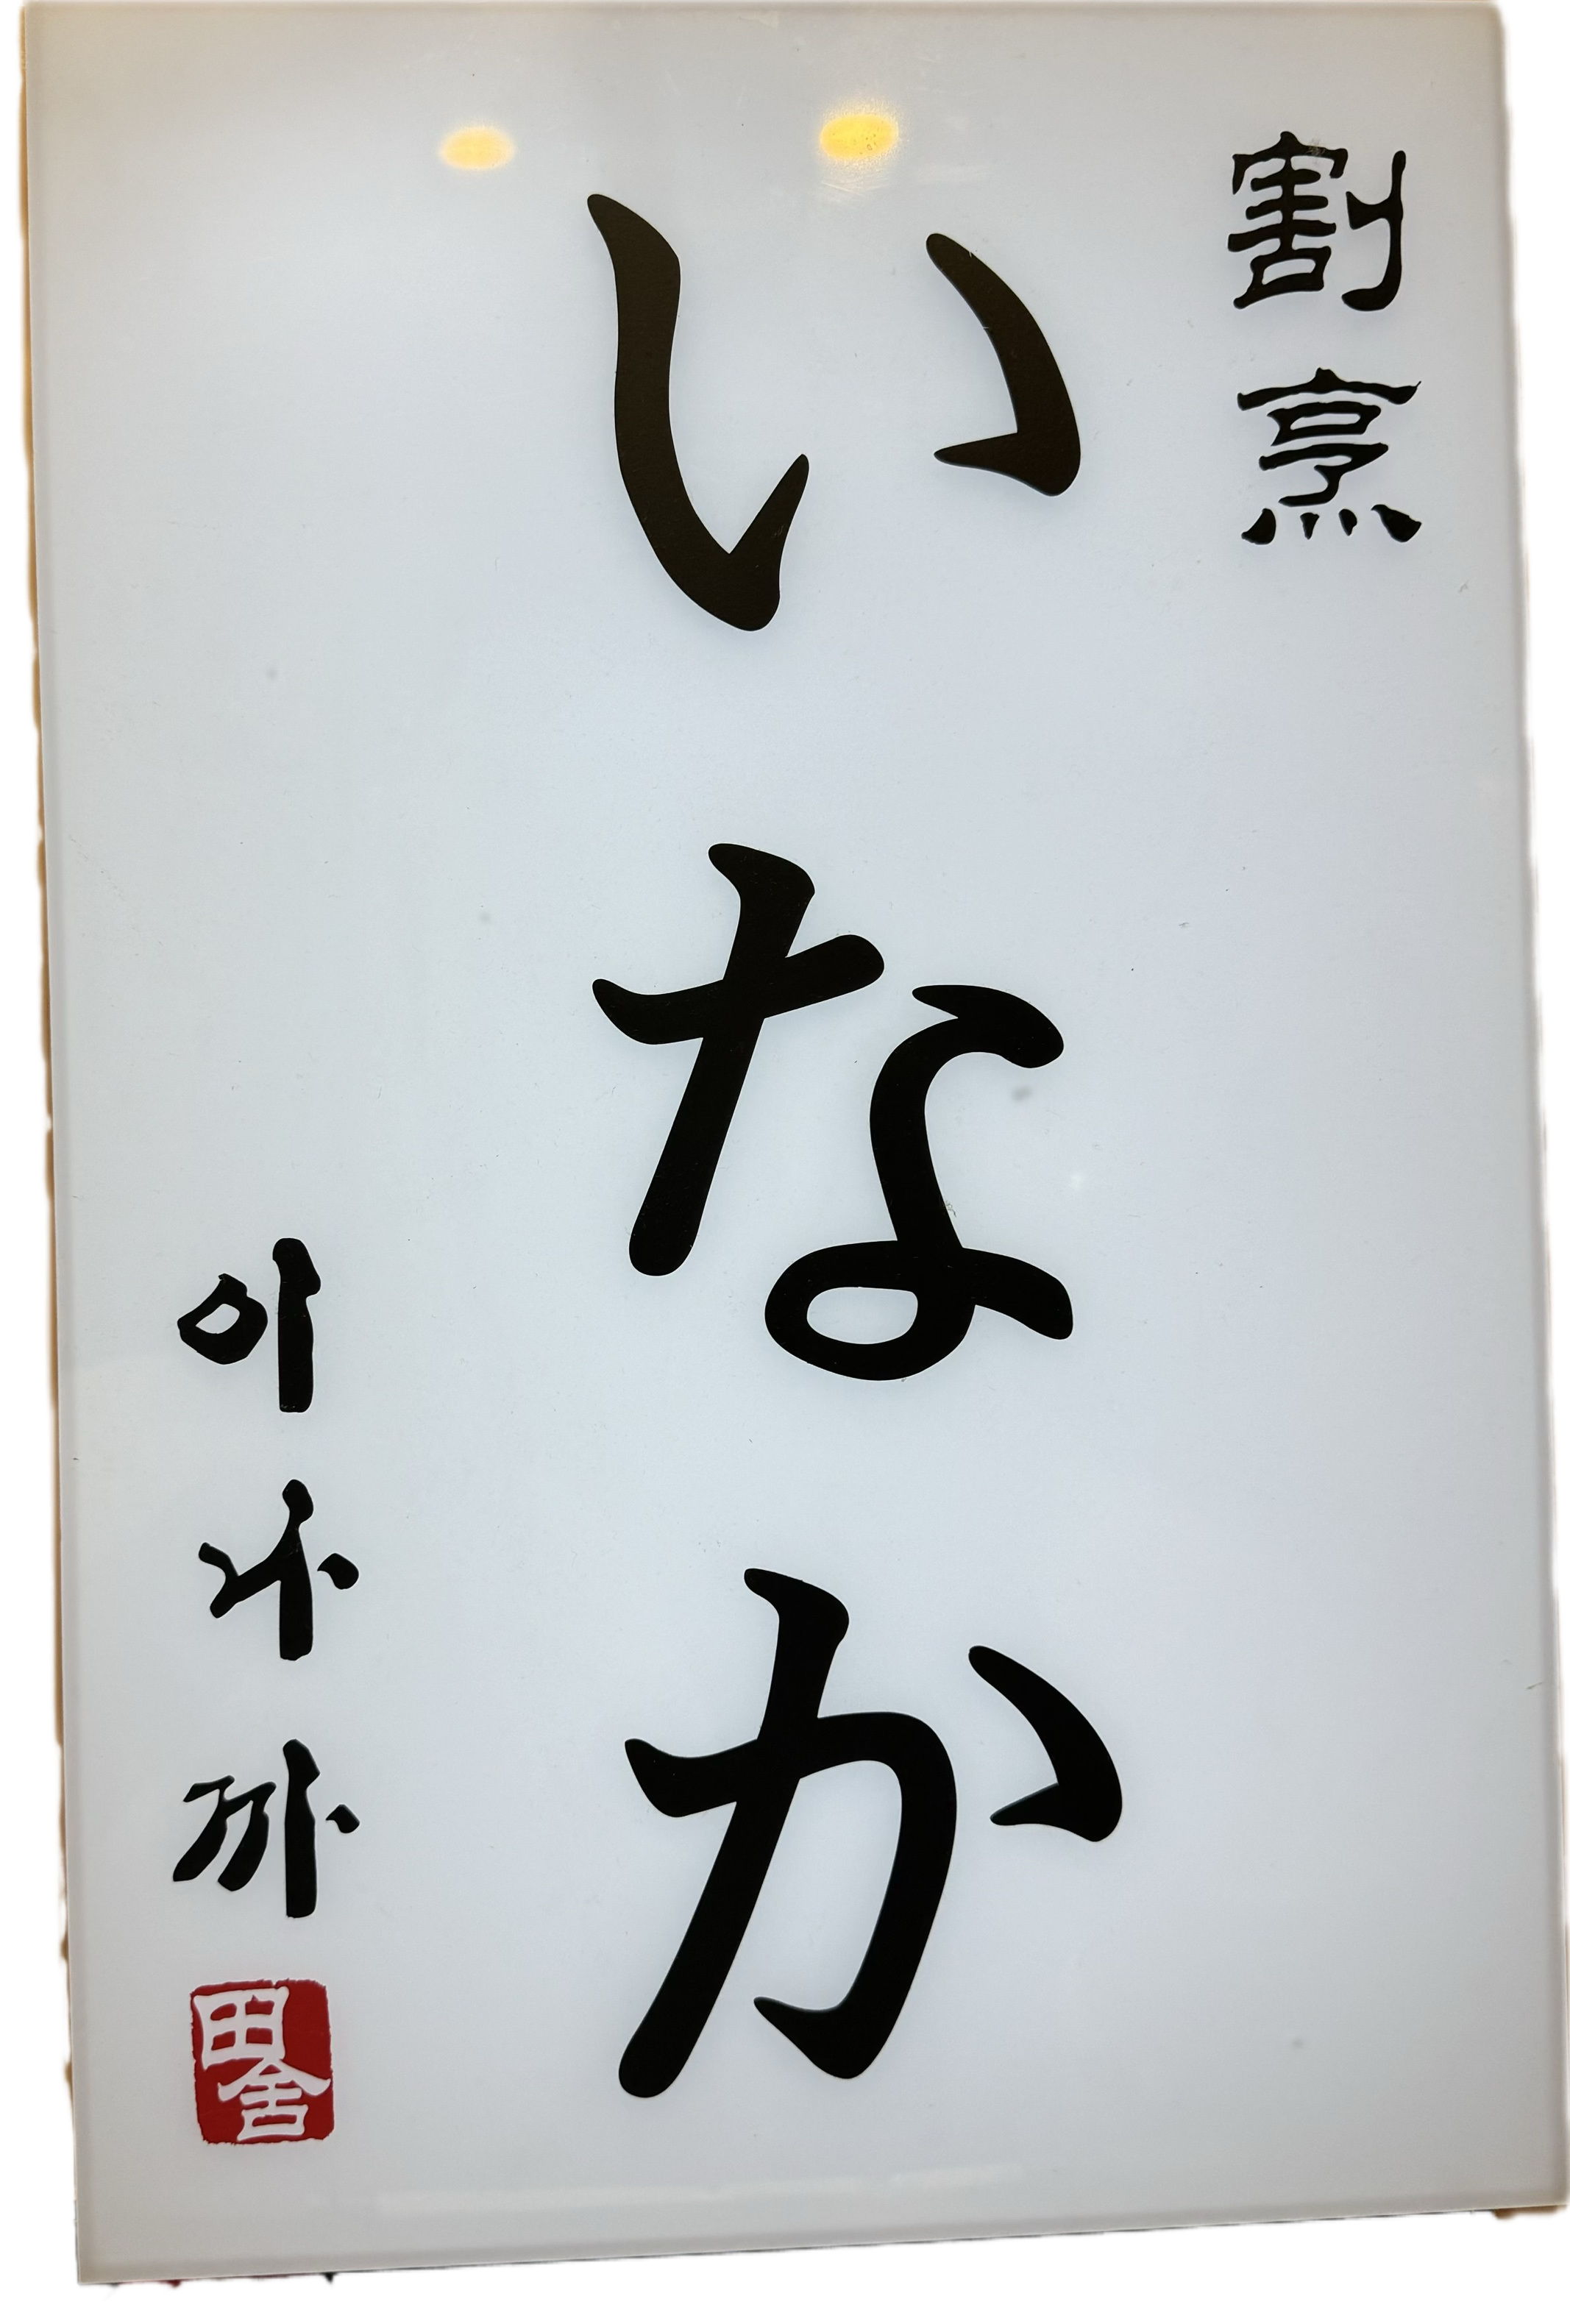 割烹
いなか
이나까
田舎